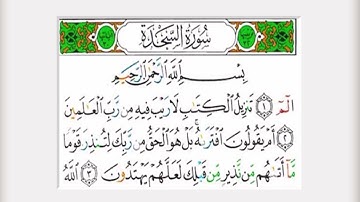 سُورَةُ السَّجْدَةِ
بِسْمِ اللَّهِ الرَّحْمَٰنِ الرَّحِيمِ
الٓمٓ ۝١ تَنزِيلُ ٱلْكِتَٰبِ لَا رَيْبَ فِيهِ مِن رَّبِّ ٱلْعَٰلَمِينَ
۝٢ أَمْ يَقُولُونَ ٱفْتَرَىٰهُ ۚ بَلْ هُوَ ٱلْحَقُّ مِن رَّبِّكَ لِتُنذِرَ قَوْمًا
مَّآ أَتَىٰهُم مِّن نَّذِيرٍ مِّن قَبْلِكَ لَعَلَّهُمْ يَهْتَدُونَ ۝٣ ٱللَّهُ